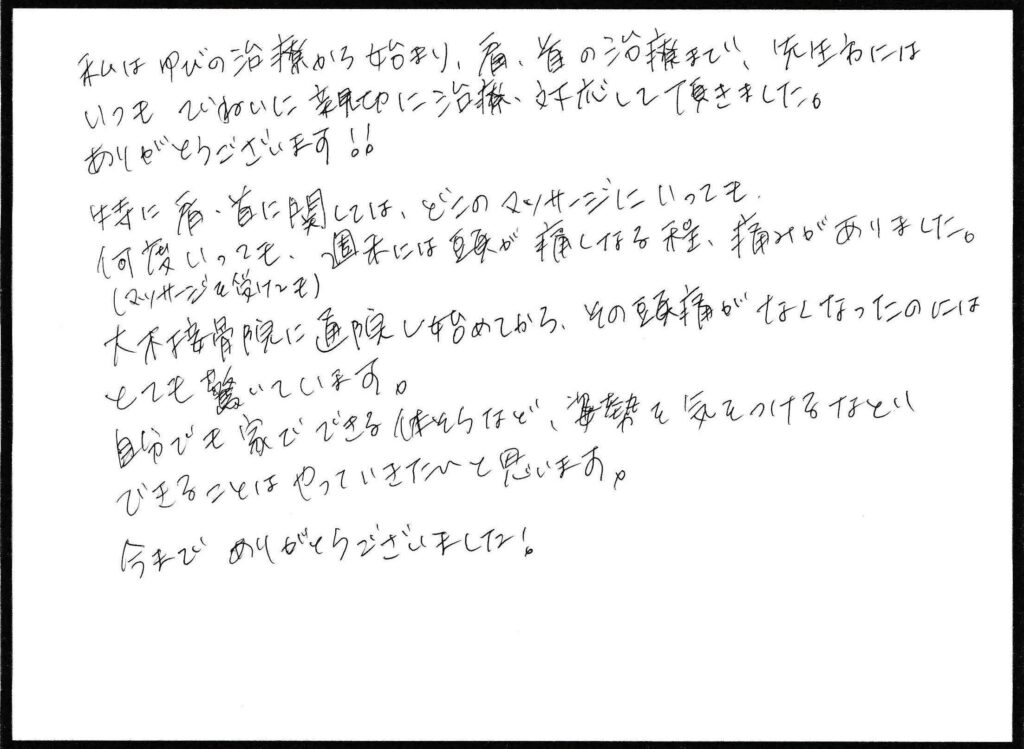 私はゆびの治療から始まり、肩、首の治療まで、先生方には
いつも ていねいに親切に治療、対応して頂きました。
ありがとうございます!!
特に肩、首に関しては、どこのマッサージにいっても、
何度いっても、週末には頭が痛くなる程、痛みがありました。
(マッサージを受けても)
大木接骨院に通院し始めてから、その頭痛がなくなったのには
とても驚いています。
自分でも家でできる体そうなど、姿勢を気をつけるなどい
できることはやっていきたいと思います。
今まで ありがとうございました!